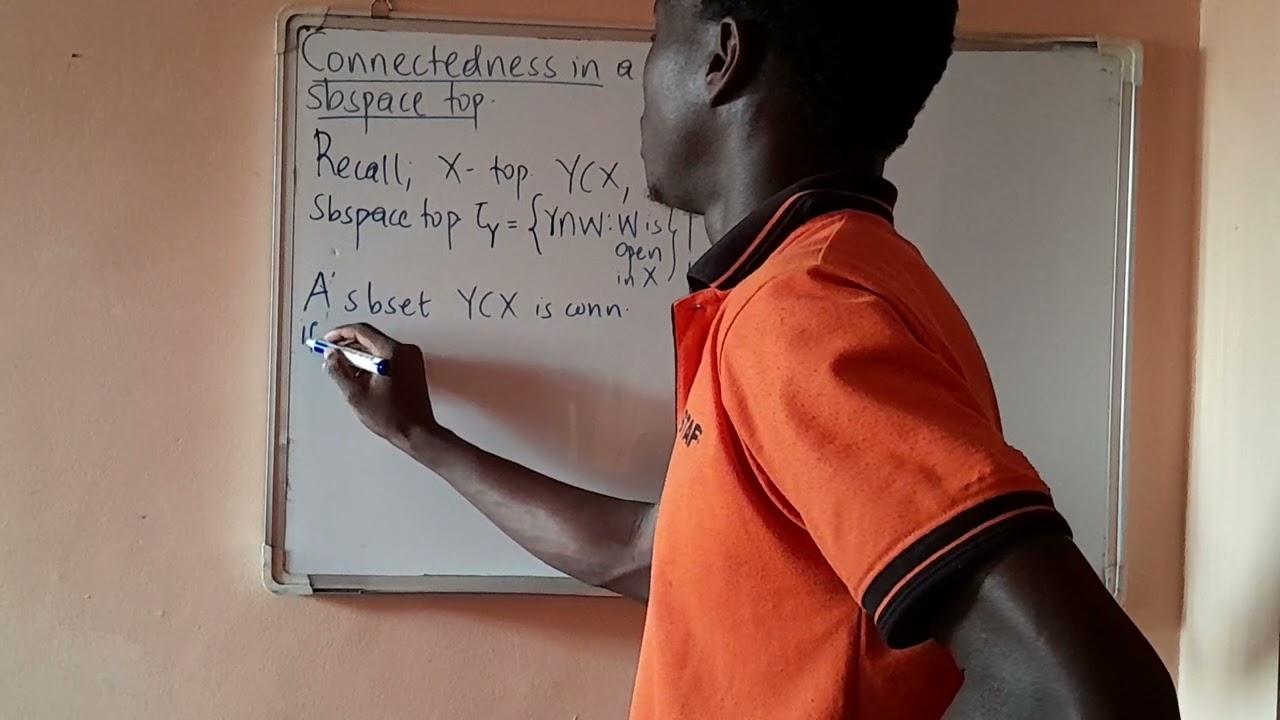 Connectedness in a
sbspace top.
Recall; X- top. Y⊂X,
sbspace top τ_Y = {Y∩W: W is
open
in X}
A sbset Y⊂X is conn.
if
STAF